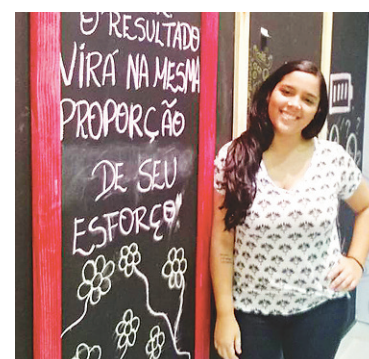 O RESULTADO
VIRÁ NA MESMA
PROPORÇÃO
DE SEU
ESFORÇO"